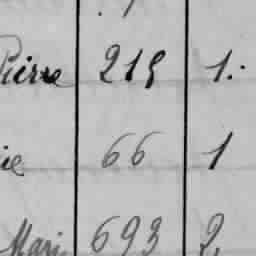 Pierre 219 1.
ie 66 1
Mari 693 2.